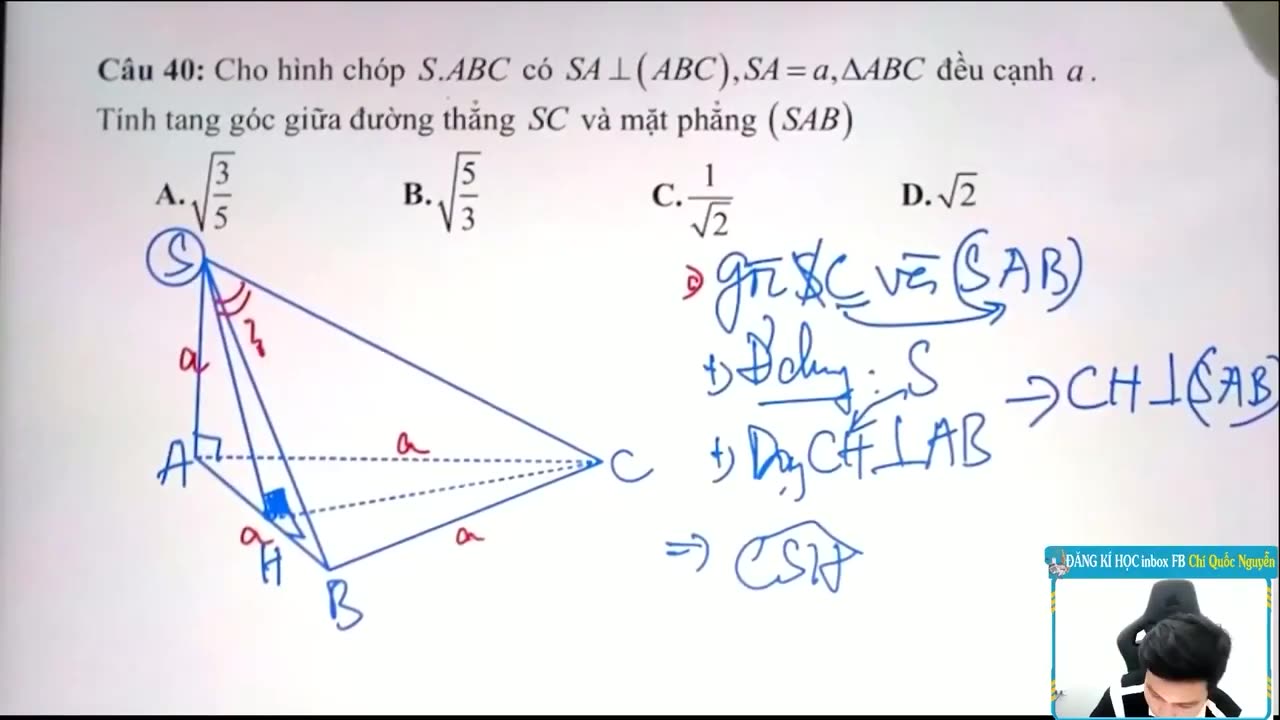 Câu 40: Cho hình chóp S.ABC có SA ⊥ (ABC), SA = a, ΔABC đều cạnh a.
Tính tang góc giữa đường thẳng SC và mặt phẳng (SAB)
A. √(3/5) B. √(5/3) C. 1/√2 D. √2
S
a
A
a
C
a
H
a
B
góc SC với (SAB)
+) Đ chung: S
+) Dựng CH ⊥ AB ⇒ CH ⊥ (SAB)
⇒ CSH
ĐĂNG KÍ HỌC inbox FB Chí Quốc Nguyễn